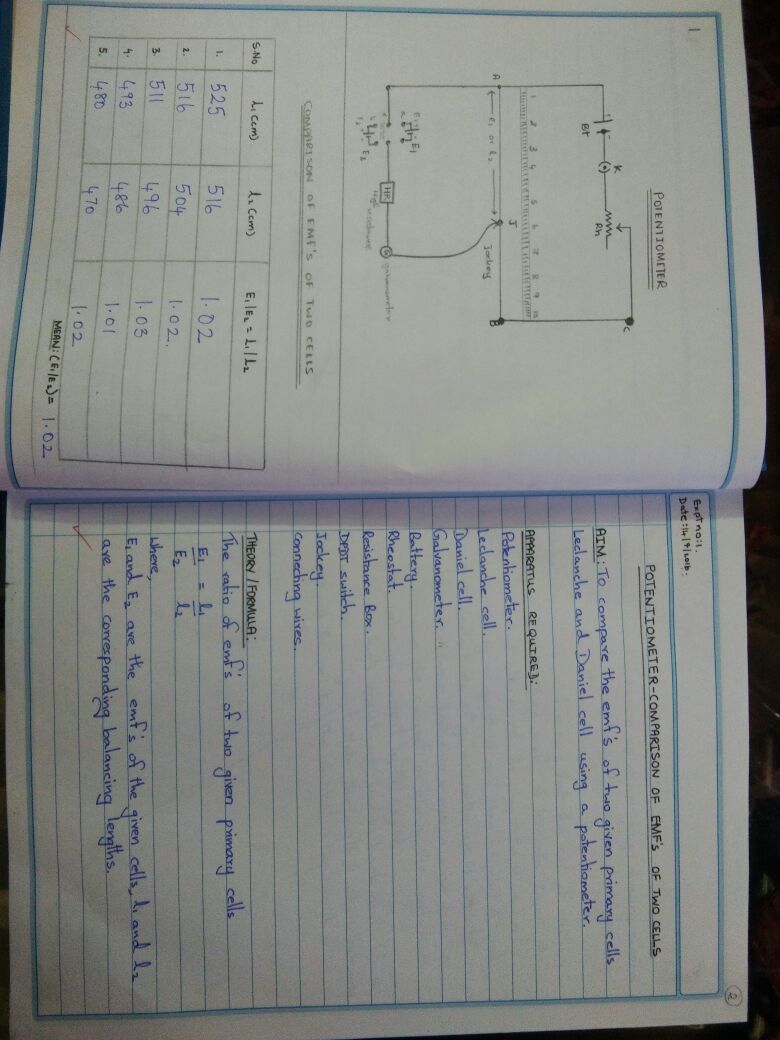 1
POTENTIOMETER
Bt
K
Rh
C
A
1 2 3 4 5 6 7 8 9 10
J
B
Jockey
E1
E2
HR
High resistance
G
galvanometer
COMPARISON OF EMF'S OF TWO CELLS
S.No l1(cm) l2(cm) E1/E2 = l1/l2
1. 525 516 1.02
2. 516 504 1.02
3. 511 496 1.03
4. 493 486 1.01
5. 480 470 1.02
MEAN: (E1/E2) = 1.02
2
Expt no:1.
POTENTIOMETER-COMPARISON OF EMF'S OF TWO CELLS
AIM: To compare the emf's of two given primary cells
Leclanche and Daniel cell using a potentiometer.
APPARATUS REQUIRED:
Potentiometer.
Leclanche cell.
Daniel cell.
Galvanometer.
Battery.
Rheostat.
Resistance Box.
DPDT switch.
Jockey
connecting wires.
THEORY/FORMULA:
The ratio of emf's of two given primary cells
E1 = l1
E2 l2
Where,
E1 and E2 are the emf's of the given cells, l1 and l2
are the corresponding balancing lengths.